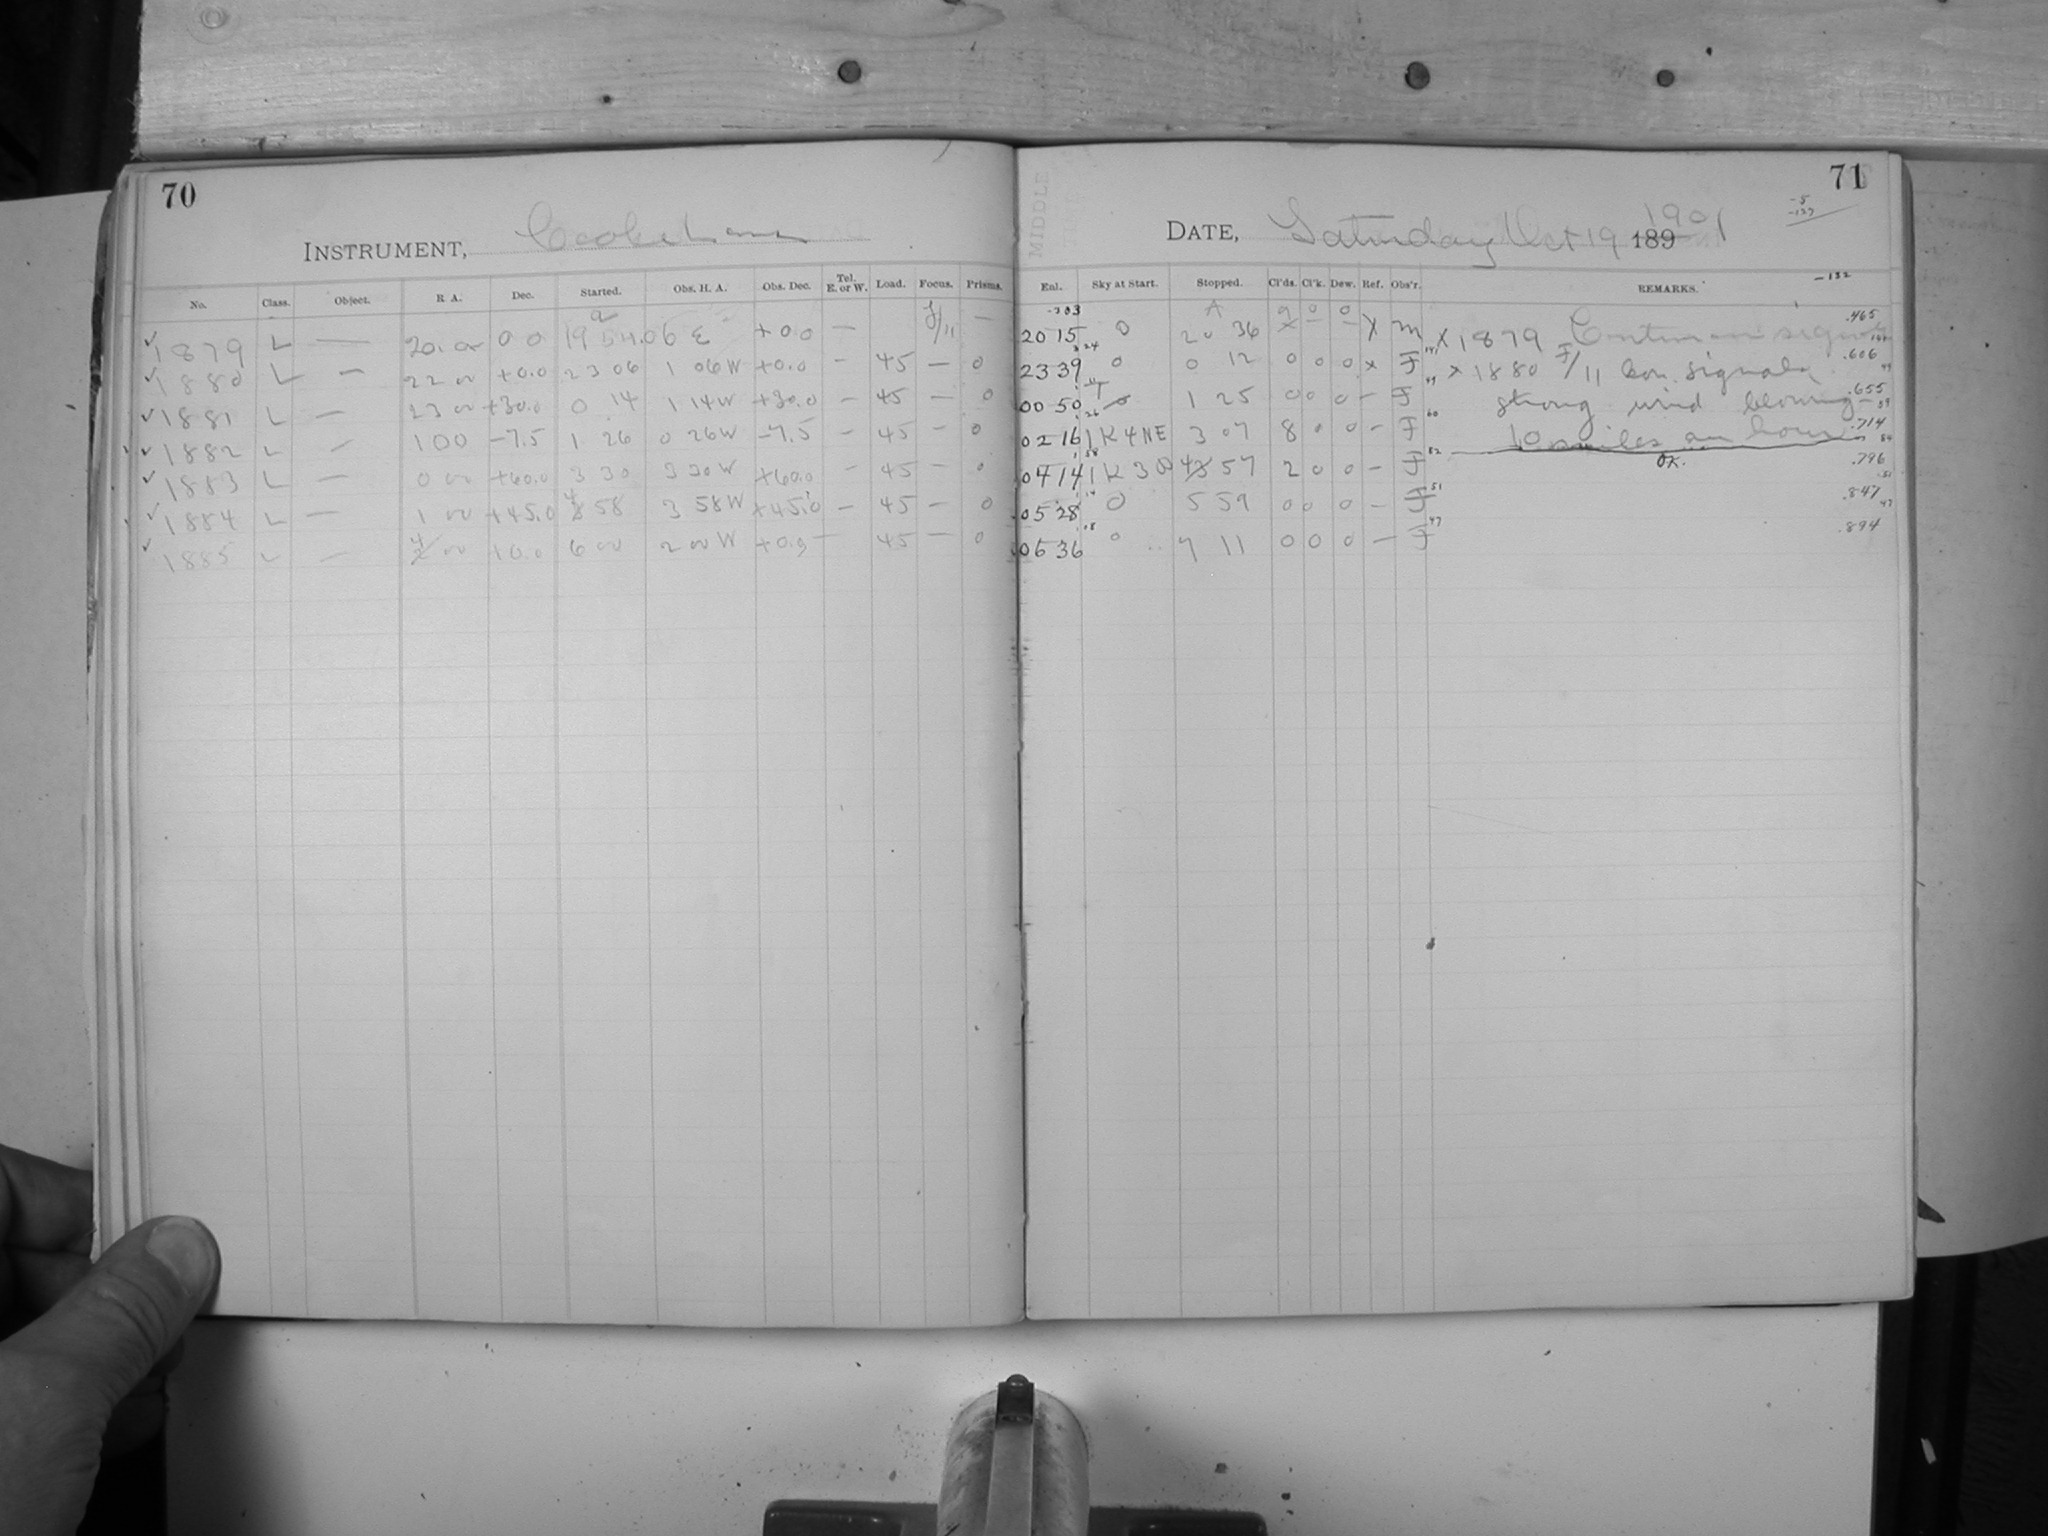 70
INSTRUMENT, Cooke Lens
No. Class. Object. R A. Dec. Started. Obs. H. A. Obs. Dec. Tel. E. or W. Load. Focus. Prisms.
a
✓ 1879 L — 20 00 0 0 19 54 .06 E +0.0 — f/11 —
✓ 1880 L — 22 00 +0.0 23 06 1 06W +0.0 — 45 — 0
✓ 1881 L — 23 00 +30.0 0 14 1 14W +30.0 — 45 — 0
✓ 1882 L — 1 00 -7.5 1 26 0 26W -7.5 — 45 — 0
✓ 1883 L — 0 00 +60.0 3 30 3 30W +60.0 — 45 — 0
✓ 1884 L — 1 00 +45.0 4 58 3 58W +45.0 — 45 — 0
✓ 1885 L — 4 00 +0.0 6 00 2 00W +0.0 — 45 — 0
71
MIDDLE
DATE, Saturday Oct 19 189 1901
-5
-127
-132
Enl. Sky at Start. Stopped. Cl'ds. Cl'k. Dew. Ref. Obs'r. REMARKS.
-203
20 15 0 20 36 X — — X M X 1879 Continuous signals .465
23 39 0 0 12 0 0 0 X F X 1880 F/11 con. signals .606
00 50 0 1 25 0 0 0 — F strong wind blowing .655
02 16 1K4NE 3 07 8 0 0 — F 10 miles an hour .714
OK.
04 14 1K3 57 2 0 0 — F .796
05 28 0 5 59 0 0 0 — F .847
06 36 0 7 11 0 0 0 — F .894